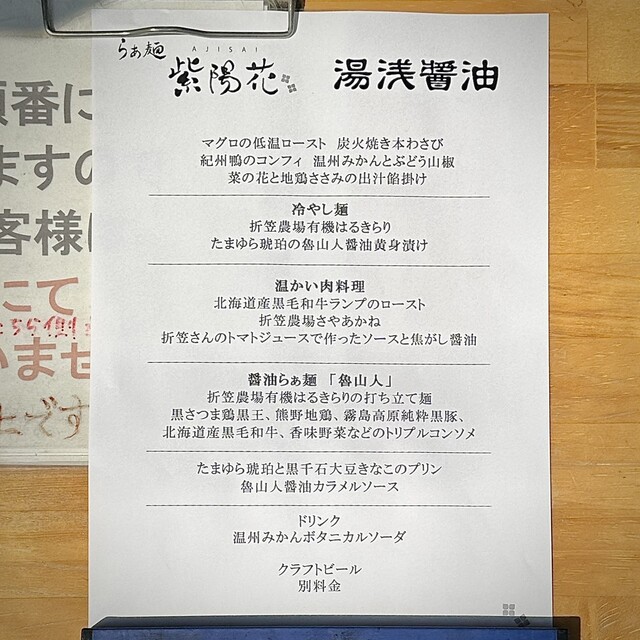 らぁ麺
AJISAI
紫陽花 湯浅醤油
マグロの低温ロースト 炭火焼き本わさび
紀州鴨のコンフィ 温州みかんとぶどう山椒
菜の花と地鶏ささみの出汁餡掛け
冷やし麺
折笠農場有機はるきらり
たまゆら琥珀の魯山人醤油黄身漬け
温かい肉料理
北海道産黒毛和牛ランプのロースト
折笠農場さやあかね
折笠さんのトマトジュースで作ったソースと焦がし醤油
醤油らぁ麺 「魯山人」
折笠農場有機はるきらりの打ち立て麺
黒さつま鶏黒王、熊野地鶏、霧島高原純粋黒豚、
北海道産黒毛和牛、香味野菜などのトリプルコンソメ
たまゆら琥珀と黒千石大豆きなこのプリン
魯山人醤油カラメルソース
ドリンク
温州みかんボタニカルソーダ
クラフトビール
別料金
順番に
ますの
客様に
にて
いませ
とです